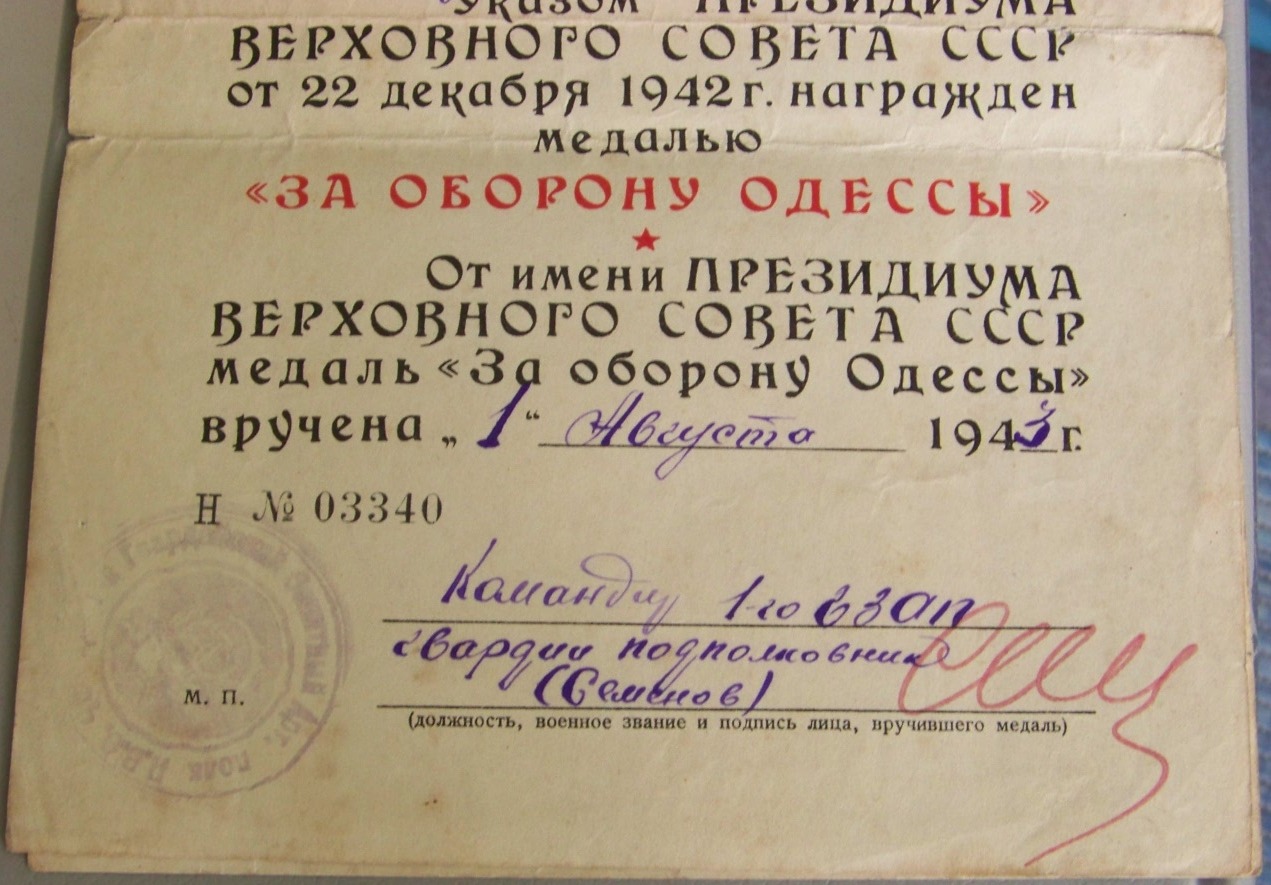 Указом ПРЕЗИДИУМА
ВЕРХОВНОГО СОВЕТА СССР
от 22 декабря 1942 г. награжден
медалью
«ЗА ОБОРОНУ ОДЕССЫ»
От имени ПРЕЗИДИУМА
ВЕРХОВНОГО СОВЕТА СССР
медаль «За оборону Одессы»
вручена „1“ Августа 1943 г.
Н № 03340
Командир 1-го ГвЗАП
гвардии подполковник
(Семенов)
М. П.
(должность, военное звание и подпись лица, вручившего медаль)
Гвардейский Зенитный Арт. полк